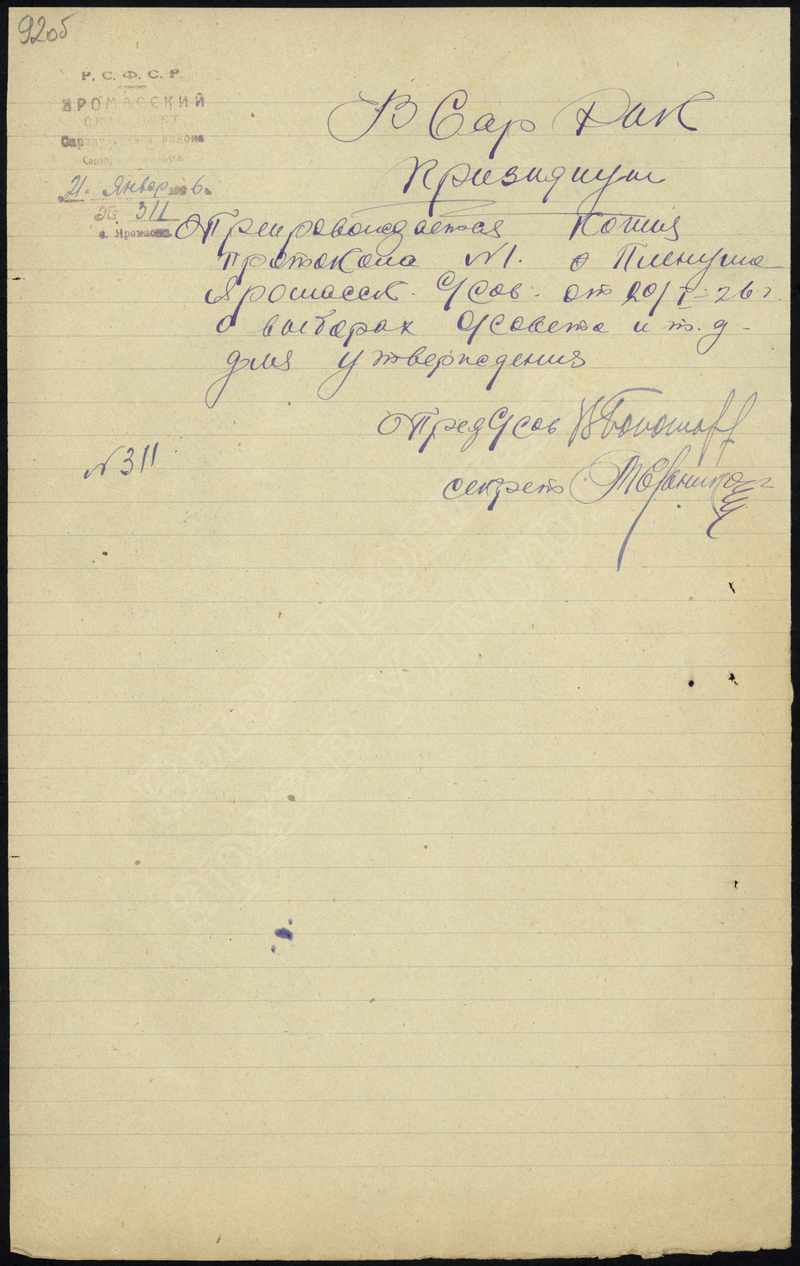 92об
Р. С. Ф. С. Р.
ЯРОМАССКИЙ
СЕЛЬСОВЕТ
района
21 Января 6
№ 311
с. Яромаска
В Сар РИК
Президиум
Препровождается Копия
протокола №1. о Пленума
Яромасск. С/сов. от 20/I-26 г.
о выборах С/совета и т.д.
для утверждения
ПредС/сов
№ 311
секрет